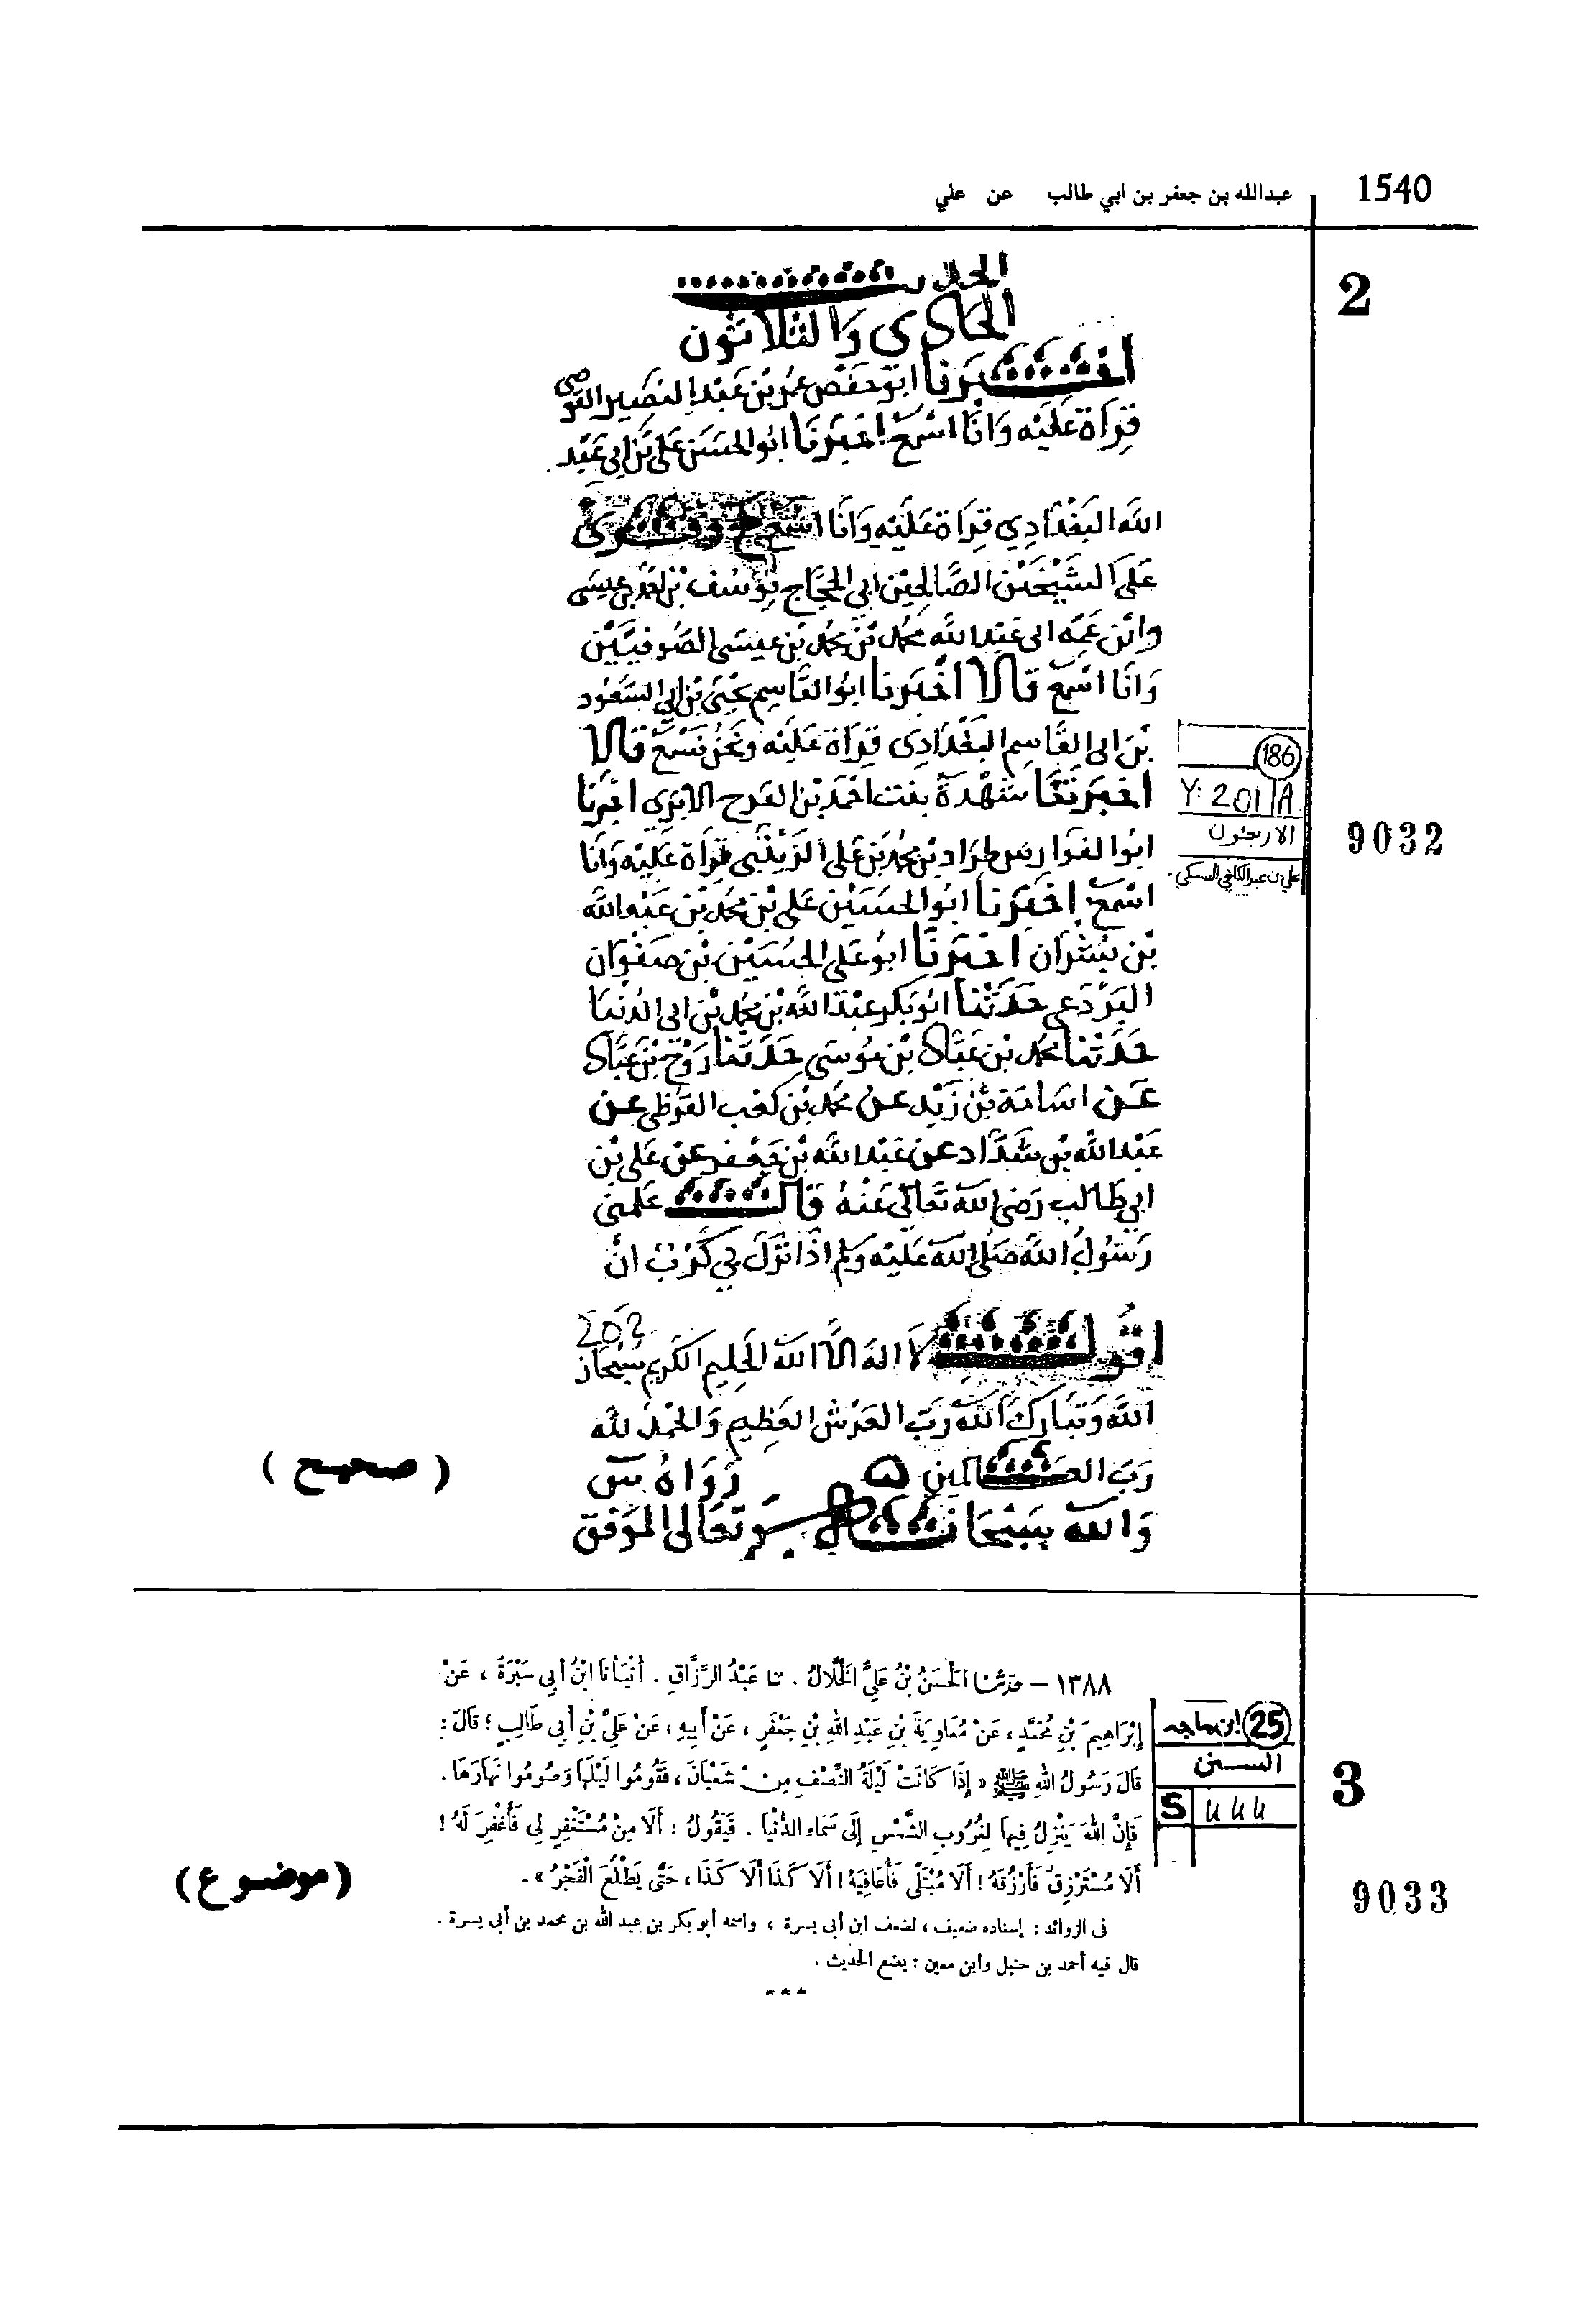 1540
عبدالله بن جعفر بن ابي طالب عن علي
2
الحديث
الحادي والثلاثون
اخبرنا ابو حفص عمر بن عبد النصير القوصي
قراة عليه وانا اسمع اخبرنا ابو الحسن علي بن ابي عبد
الله البغدادي قراة عليه وانا اسمع وقرئ
على الشيخين الصالحين ابي الحجاج يوسف بن احمد بن عيسى
وابن عمه ابي عبد الله محمد بن محمد بن عيسى الصوفيين
وانا اسمع قالا اخبرنا ابو القاسم يحيى بن ابي السعود
بن ابي القاسم البغدادي قراة عليه ونحن نسمع قالا
اخبرتنا شهدة بنت احمد بن الفرج الابري اخبرنا
ابو الفوارس طراد بن محمد بن علي الزينبي قراة عليه وانا
اسمع اخبرنا ابو الحسين علي بن محمد بن عبد الله
بن بشران اخبرنا ابو علي الحسين بن صفوان
البردعي حدثنا ابو بكر عبد الله بن محمد بن ابي الدنيا
حدثنا محمد بن عباد بن موسى حدثنا روح بن عباد
عن اسامة بن زيد عن محمد بن كعب القرظي عن
عبد الله بن شداد عن عبد الله بن جعفر عن علي بن
ابي طالب رضي الله تعالى عنه قال علمني
رسول الله صلى الله عليه وسلم اذا نزل بي كرب ان
202
اقول لا اله الا الله الحليم الكريم سبحان
الله وتبارك الله رب العرش العظيم والحمد لله
رب العالمين رواه س
والله سبحانه وتعالى الموفق
(صحيح)
186
Y: 201/A
الاربعون
علي بن عبدالكافي السبكي
9032
١٣٨٨ – حدثنا الْحَسَنُ بْنُ عَلِيٍّ الْخَلَّالُ . ثنا عَبْدُ الرَّزَّاقِ . أَنْبَأَنَا ابْنُ أَبِي سَبْرَةَ ، عَنْ
إِبْرَاهِيمَ بْنِ مُحَمَّدٍ ، عَنْ مُعَاوِيَةَ بْنِ عَبْدِ اللهِ بْنِ جَعْفَرٍ ، عَنْ أَبِيهِ ، عَنْ عَلِيِّ بْنِ أَبِي طَالِبٍ ؛ قَالَ :
قَالَ رَسُولُ اللهِ ﷺ « إِذَا كَانَتْ لَيْلَةُ النِّصْفِ مِنْ شَعْبَانَ ، فَقُومُوا لَيْلَهَا وَصُومُوا نَهَارَهَا .
فَإِنَّ اللهَ يَنْزِلُ فِيهَا لِغُرُوبِ الشَّمْسِ إِلَى سَمَاءِ الدُّنْيَا . فَيَقُولُ : أَلَا مِنْ مُسْتَغْفِرٍ لِي فَأَغْفِرَ لَهُ !
أَلَا مُسْتَرْزِقٌ فَأَرْزُقَهُ ! أَلَا مُبْتَلًى فَأُعَافِيَهُ ! أَلَا كَذَا أَلَا كَذَا ، حَتَّى يَطْلُعَ الْفَجْرُ » .
فى الزوائد : إسناده ضعيف ، لضعف ابن أبى بسرة ، واسمه أبو بكر بن عبد الله بن محمد بن أبى بسرة .
قال فيه أحمد بن حنبل وابن معين : يضع الحديث .
***
(موضوع)
25 ابن ماجه
السنن
S ٤٤٤
3
9033